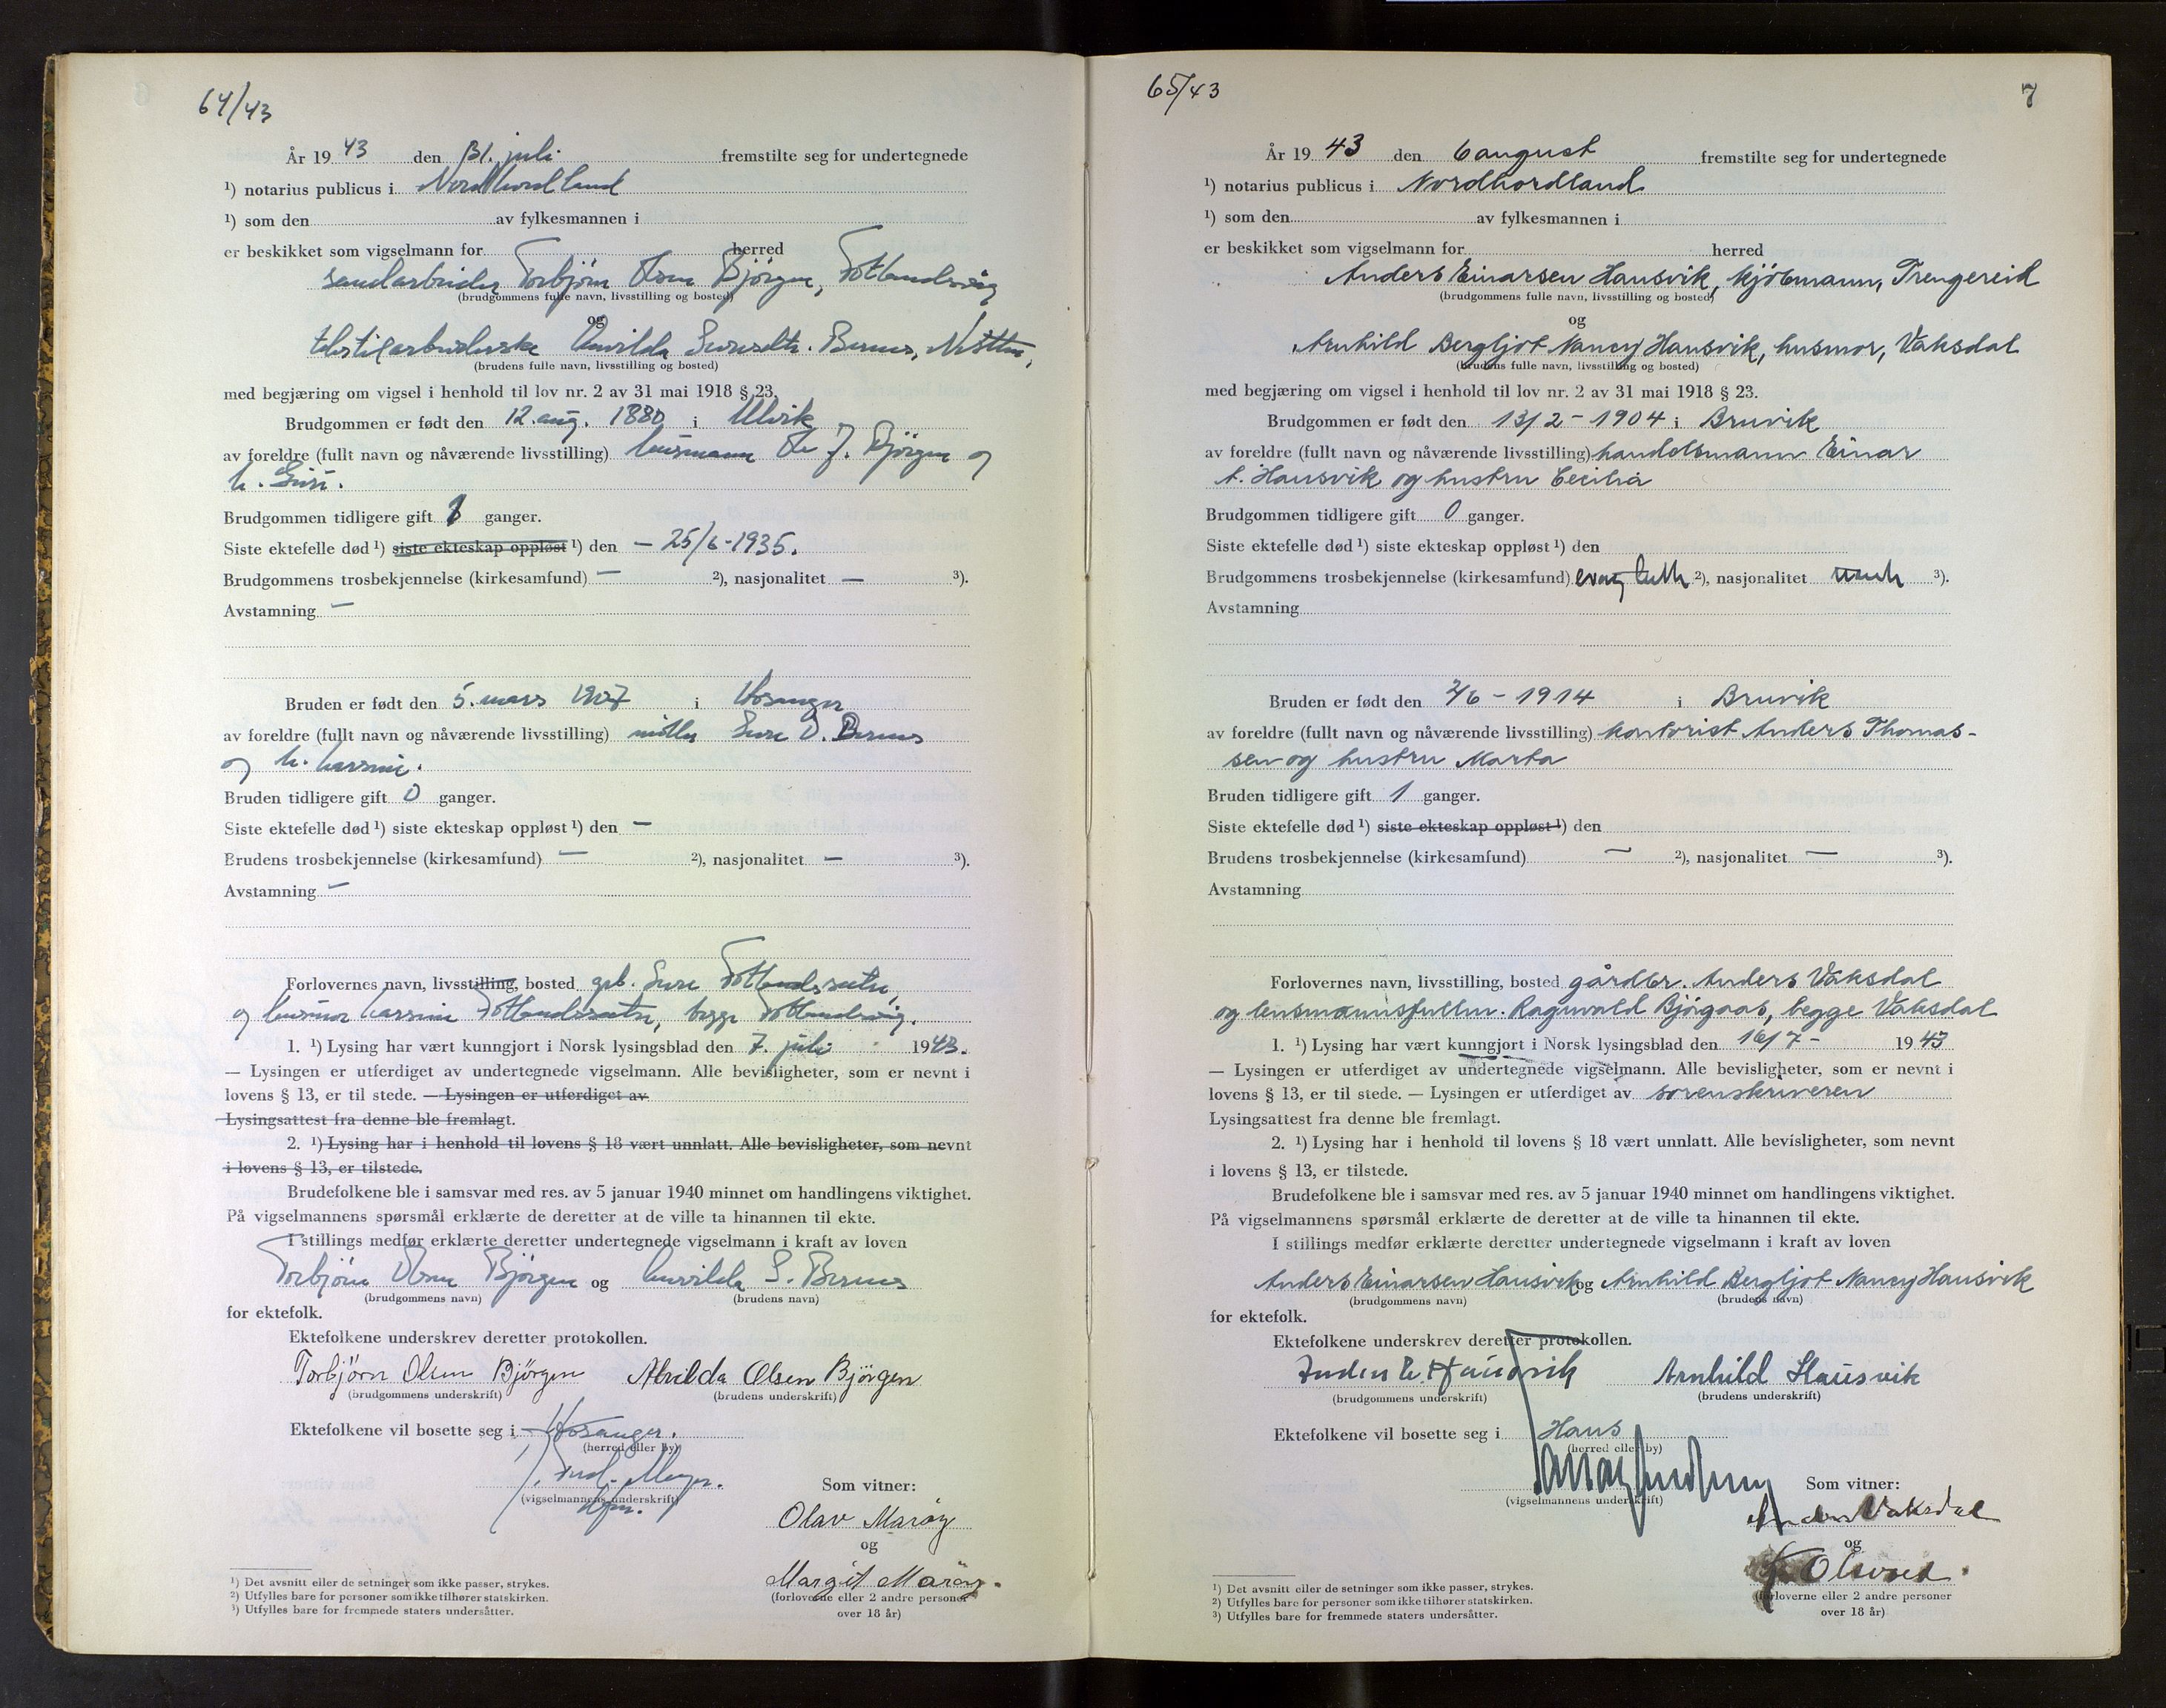 64/43
År 1943 den 31. juli fremstilte seg for undertegnede
¹) notarius publicus i Nordhordland
¹) som den av fylkesmannen i
er beskikket som vigselmann for herred
Torbjørn Olsen Bjørgen,
(brudgommens fulle navn, livsstilling og bosted)
og
(brudens fulle navn, livsstilling og bosted)
med begjæring om vigsel i henhold til lov nr. 2 av 31 mai 1918 § 23.
Brudgommen er født den 12. aug. 1880 i Ulvik
av foreldre (fullt navn og nåværende livsstilling) husmann Ole J. Bjørgen og
h. Guri.
Brudgommen tidligere gift 1 ganger.
Siste ektefelle død ¹) siste ekteskap oppløst ¹) den – 25/6-1935.
Brudgommens trosbekjennelse (kirkesamfund) – ²), nasjonalitet — ³).
Avstamning –
Bruden er født den 5. mars i Hosanger
av foreldre (fullt navn og nåværende livsstilling)
og h.
Bruden tidligere gift 0 ganger.
Siste ektefelle død ¹) siste ekteskap oppløst ¹) den –
Brudens trosbekjennelse (kirkesamfund) – ²), nasjonalitet – ³).
Avstamning –
Forlovernes navn, livsstilling, bosted
og husmor
1. ¹) Lysing har vært kunngjort i Norsk lysingsblad den 7. juli 1943.
— Lysingen er utferdiget av undertegnede vigselmann. Alle bevisligheter, som er nevnt i
lovens § 13, er til stede. — Lysingen er utferdiget av
Lysingsattest fra denne ble fremlagt.
2. ¹) Lysing har i henhold til lovens § 18 vært unnlatt. Alle bevisligheter, som nevnt
i lovens § 13, er tilstede.
Brudefolkene ble i samsvar med res. av 5 januar 1940 minnet om handlingens viktighet.
På vigselmannens spørsmål erklærte de deretter at de ville ta hinannen til ekte.
I stillings medfør erklærte deretter undertegnede vigselmann i kraft av loven
Torbjørn Olsen Bjørgen og
(brudgommens navn) (brudens navn)
for ektefolk.
Ektefolkene underskrev deretter protokollen.
Torbjörn Olsen Björgen Alvilda Olsen Björgen
(brudgommens underskrift) (brudens underskrift)
Ektefolkene vil bosette seg i Hosanger.
(herred eller by)
(vigselmannens underskrift)
Som vitner:
Olav Marøy
og
Margit Marøy.
(forloverne eller 2 andre personer
over 18 år)
¹) Det avsnitt eller de setninger som ikke passer, strykes.
²) Utfylles bare for personer som ikke tilhører statskirken.
³) Utfylles bare for fremmede staters undersåtter.
65/43
7
År 1943 den 6 august fremstilte seg for undertegnede
¹) notarius publicus i Nordhordland
¹) som den av fylkesmannen i
er beskikket som vigselmann for herred
Anders Einarsen Hausvik, kjöbmann, Trengereid
(brudgommens fulle navn, livsstilling og bosted)
og
Arnhild Bergljot Nancy Hausvik, husmor, Vaksdal
(brudens fulle navn, livsstilling og bosted)
med begjæring om vigsel i henhold til lov nr. 2 av 31 mai 1918 § 23.
Brudgommen er født den 13/2 – 1904 i Bruvik
av foreldre (fullt navn og nåværende livsstilling) handelsmann Einar
A. Hausvik og hustru Cecilia
Brudgommen tidligere gift 0 ganger.
Siste ektefelle død ¹) siste ekteskap oppløst ¹) den
Brudgommens trosbekjennelse (kirkesamfund) evag luth ²), nasjonalitet norsk ³).
Avstamning
Bruden er født den 2/6 – 1914 i Bruvik
av foreldre (fullt navn og nåværende livsstilling) kontorist Anders Thomas-
sen og hustru Marta
Bruden tidligere gift 1 ganger.
Siste ektefelle død ¹) siste ekteskap oppløst ¹) den
Brudens trosbekjennelse (kirkesamfund) – ²), nasjonalitet — ³).
Avstamning
Forlovernes navn, livsstilling, bosted gårdbr. Anders Vaksdal
og lensmannsfullm. Ragnvald Bjørgaas, begge Vaksdal
1. ¹) Lysing har vært kunngjort i Norsk lysingsblad den 16/7 – 1943
— Lysingen er utferdiget av undertegnede vigselmann. Alle bevisligheter, som er nevnt i
lovens § 13, er til stede. — Lysingen er utferdiget av sorenskriveren
Lysingsattest fra denne ble fremlagt.
2. ¹) Lysing har i henhold til lovens § 18 vært unnlatt. Alle bevisligheter, som nevnt
i lovens § 13, er tilstede.
Brudefolkene ble i samsvar med res. av 5 januar 1940 minnet om handlingens viktighet.
På vigselmannens spørsmål erklærte de deretter at de ville ta hinannen til ekte.
I stillings medfør erklærte deretter undertegnede vigselmann i kraft av loven
Anders Einarsen Hausvik og Arnhild Bergljot Nancy Hausvik
(brudgommens navn) (brudens navn)
for ektefolk.
Ektefolkene underskrev deretter protokollen.
Anders E. Hausvik Arnhild Hausvik
(brudgommens underskrift) (brudens underskrift)
Ektefolkene vil bosette seg i Haus
(herred eller by)
(vigselmannens underskrift)
Som vitner:
Anders Vaksdal
og
(forloverne eller 2 andre personer
over 18 år)
¹) Det avsnitt eller de setninger som ikke passer, strykes.
²) Utfylles bare for personer som ikke tilhører statskirken.
³) Utfylles bare for fremmede staters undersåtter.